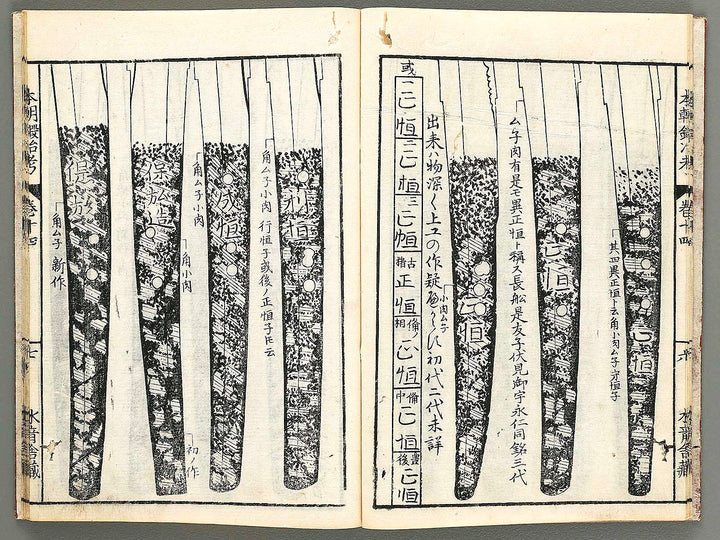 巻十四
水龍舎蔵
其四異正恒ト云角小肉ム子守恒子
正恒
正恒
ム子肉有是モ異正恒ト称ス長船是友子伏見御宇永仁同銘三代
小肉ム子
正恒
出来ハ物深く上工の作疑
初代二代未詳
或
一正恒
二正恒
三正恒
古備
正恒
備相
正恒
備中
正恒
後
正恒
利恒
角ム子小肉 行恒子或後ノ正恒子ニ云
成恒
角ム子小肉
保放造
角小肉
初ノ作
保放
角ム子 新作
本朝鍛冶考
巻十四
七
水龍舎蔵